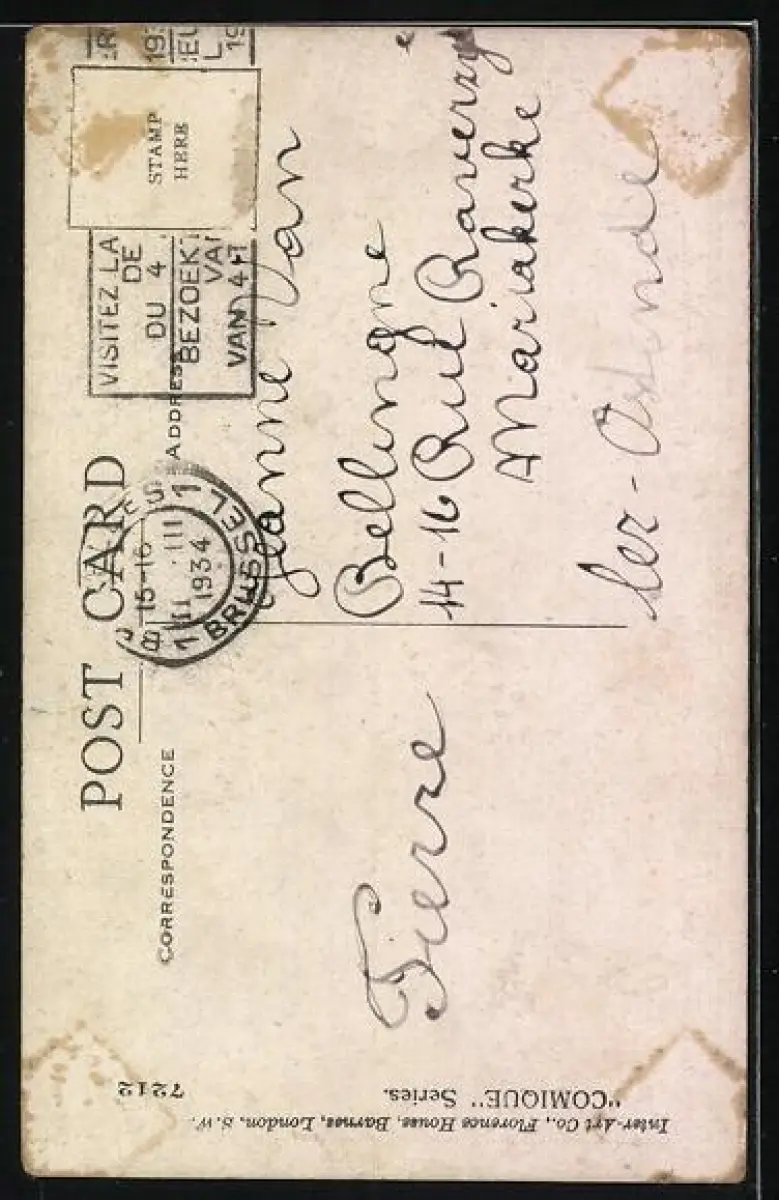 POST CARD
CORRESPONDENCE
ADDRESS
STAMP
HERE
VISITEZ LA
DE
DU 4
BEZOEK
VAN 4
15-16
III
1934
BRUSSEL
1
Jeanne Van
Bellingne
14-16 Rue
Mariakerke
Ostende
Pierre
7212
"COMIQUE" Series.
Inter-Art Co., Florence House, Barnes, London, S.W.